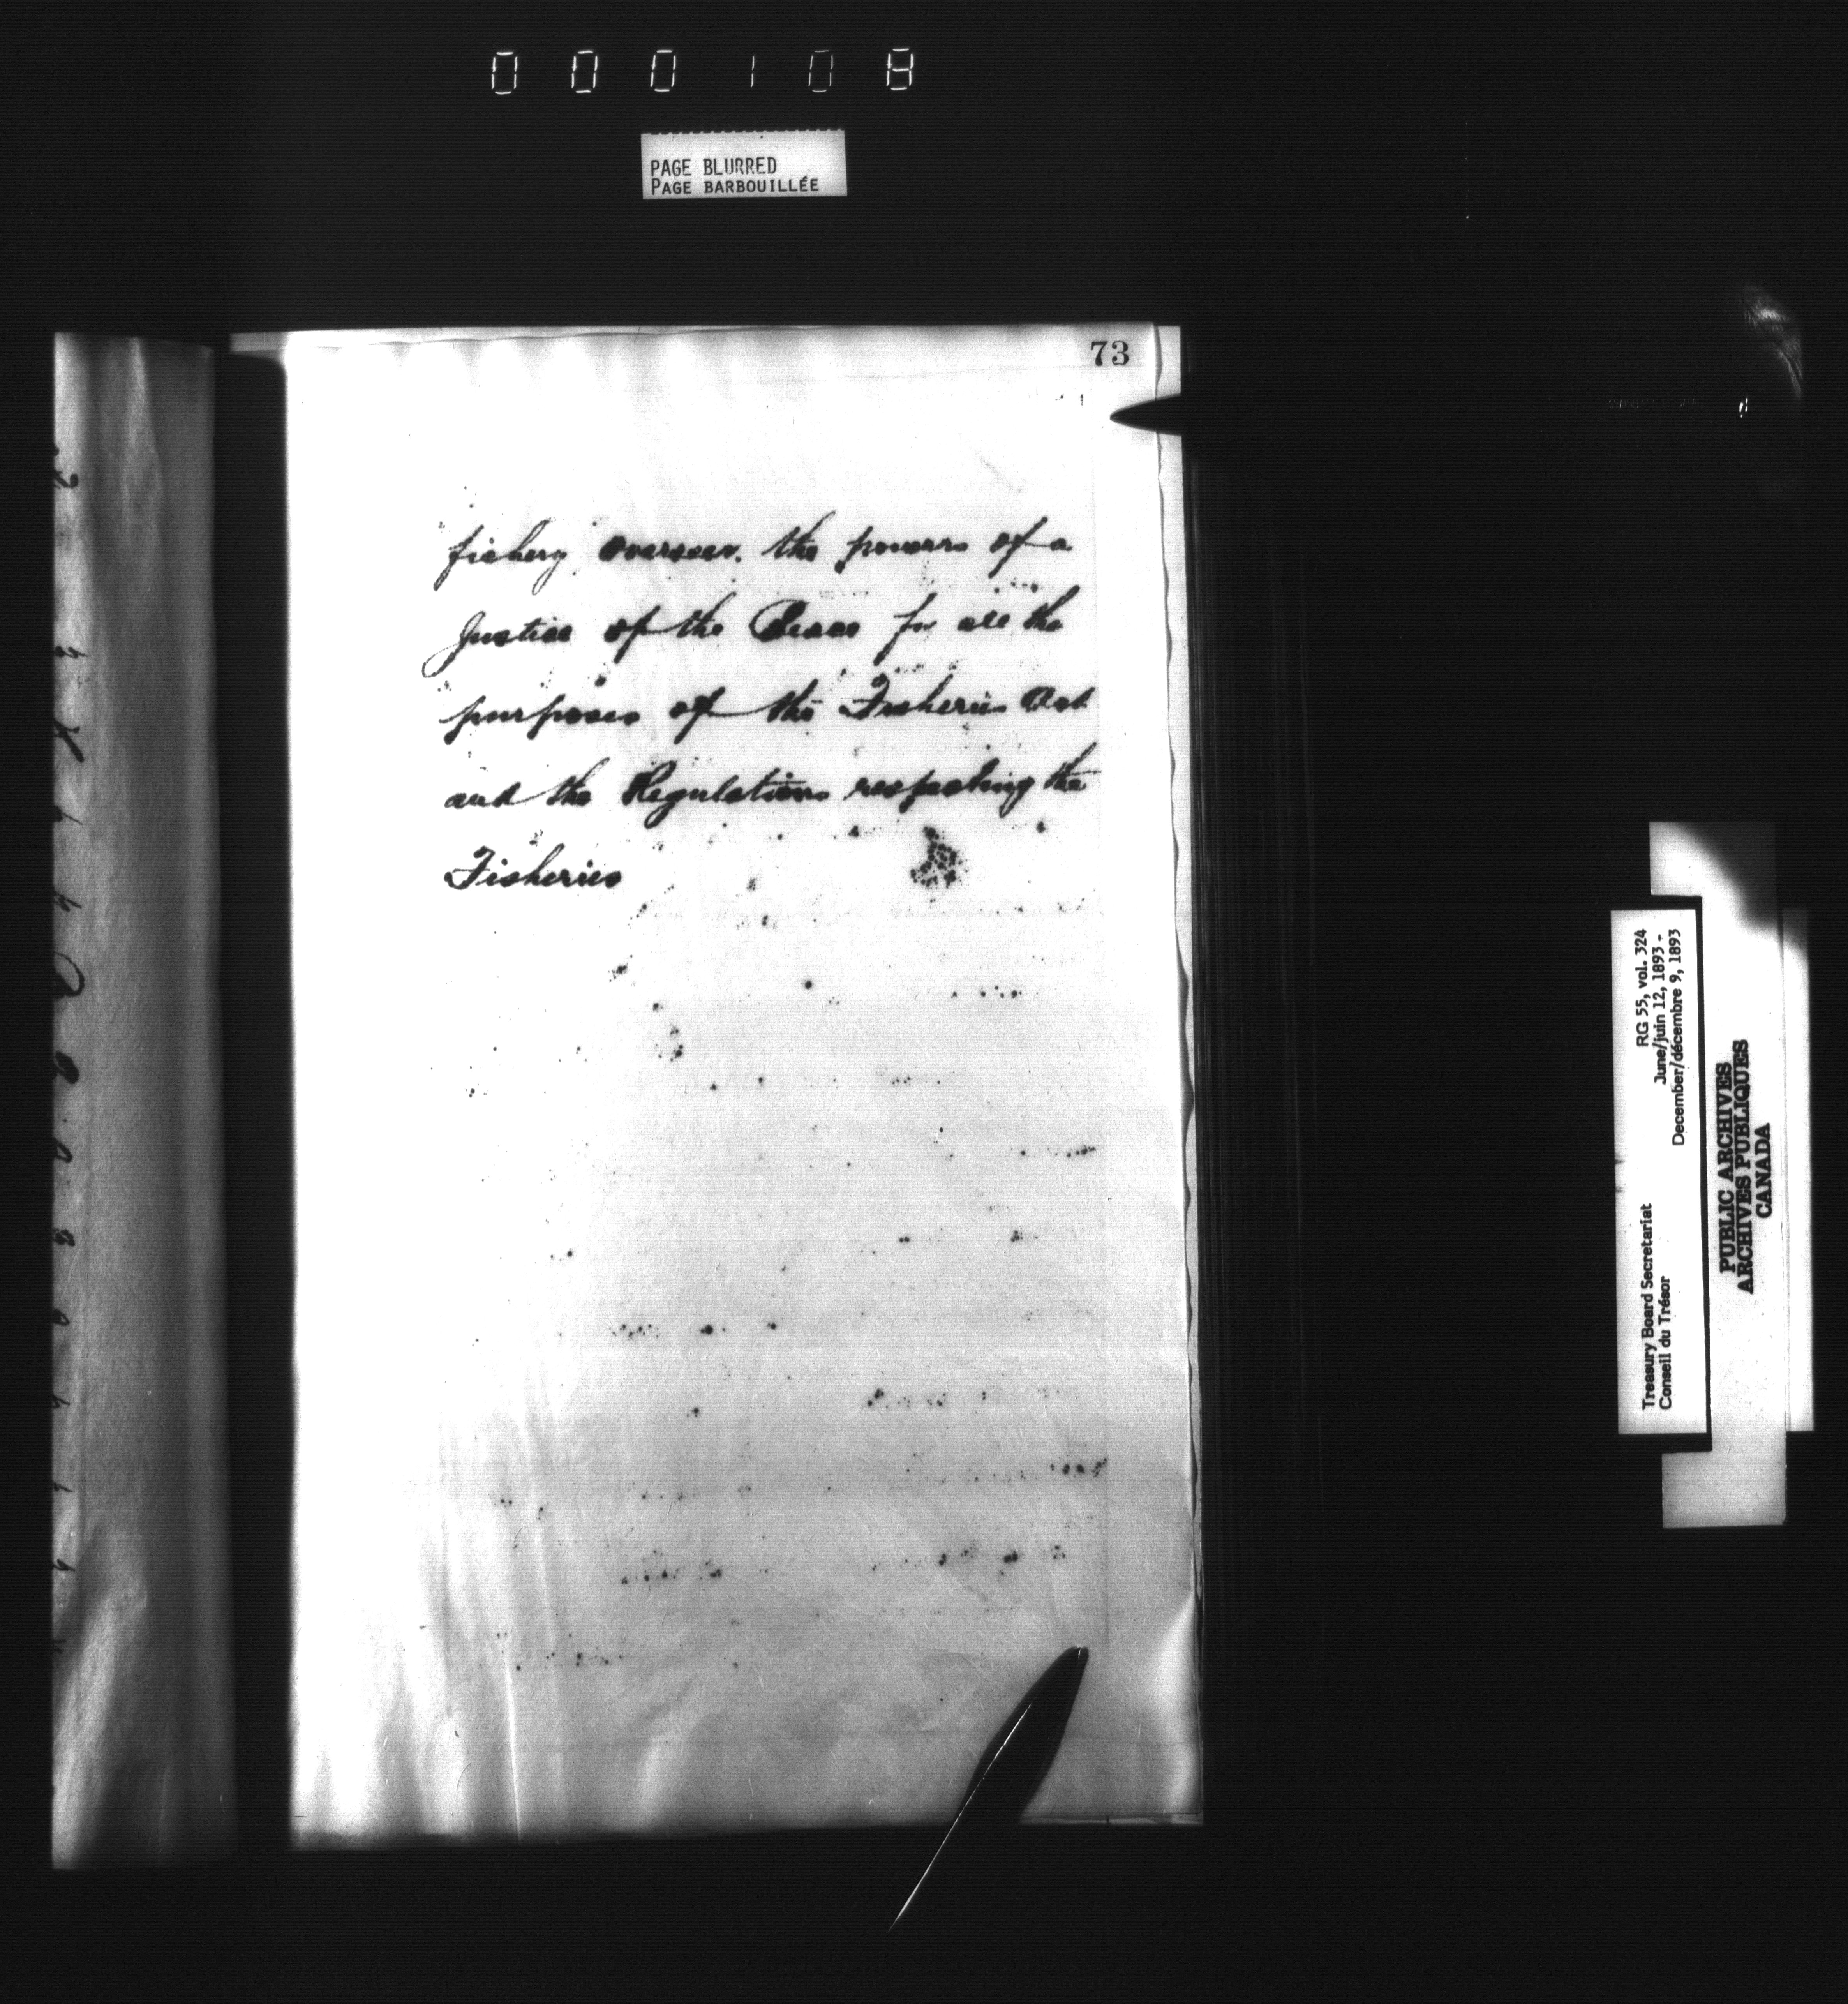 000108
PAGE BLURRED
PAGE BARBOUILLÉE
73
fishery overseer. the powers of a
Justice of the Peace for all the
purposes of the Fisheries Act
and the Regulations respecting the
Fisheries
Treasury Board Secretariat RG 55, vol. 324
Conseil du Trésor June/juin 12, 1893 -
December/décembre 9, 1893
PUBLIC ARCHIVES
ARCHIVES PUBLIQUES
CANADA